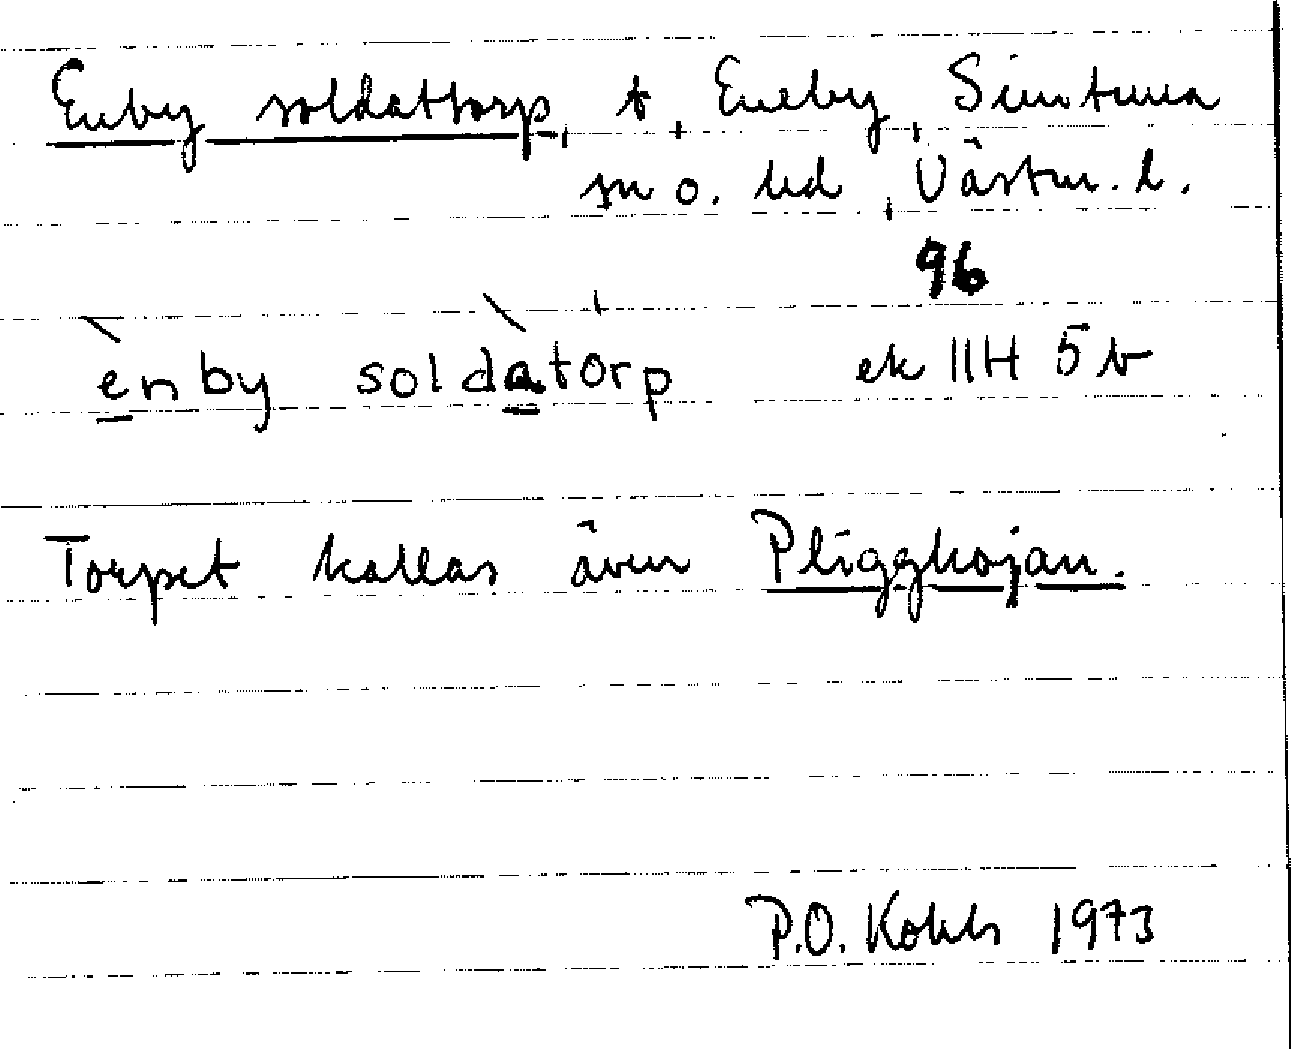 Enby soldattorp, t, Eneby, Simtuna
sn o. hd, Västm. l.
96
ènby soldàtòrp ek 11H 5 b
Torpet kallas även Pliggkojan.
P.O. Kohls 1973